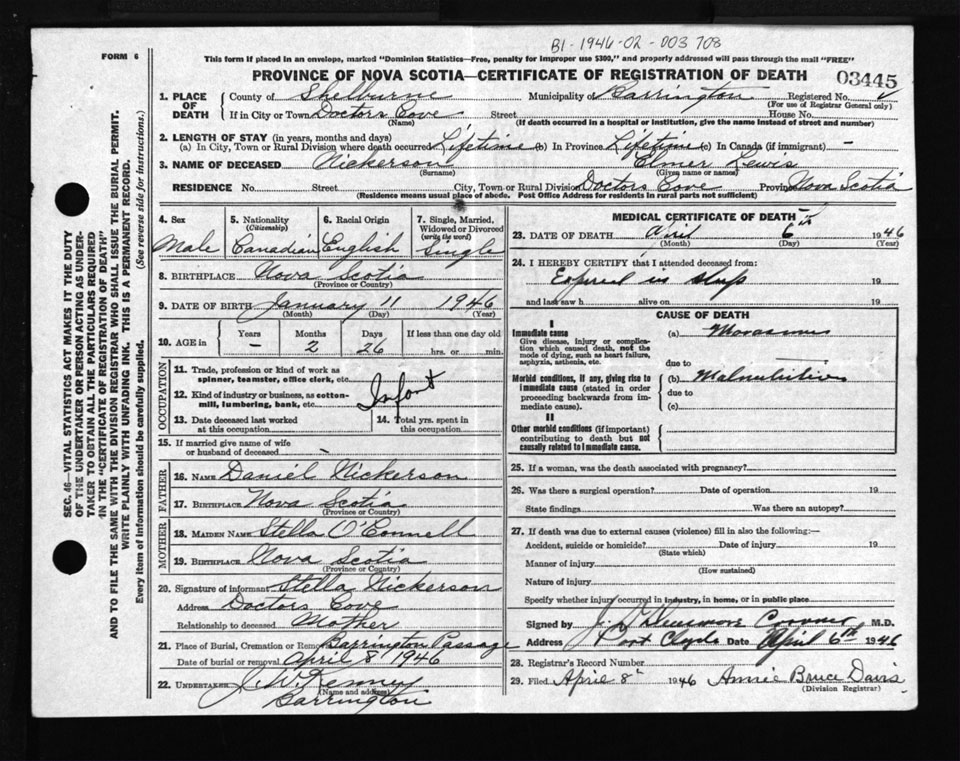 B1-1946-02-003708
FORM 6
This form if placed in an envelope, marked "Dominion Statistics—Free, penalty for improper use $300," and properly addressed will pass through the mail "FREE"
PROVINCE OF NOVA SCOTIA—CERTIFICATE OF REGISTRATION OF DEATH
03445
1. PLACE OF DEATH County of Shelburne Municipality of Barrington Registered No.
(For use of Registrar General only)
If in City or Town Doctors Cove Street House No.
(Name) (If death occurred in a hospital or institution, give the name instead of street and number)
2. LENGTH OF STAY (in years, months and days)
(a) In City, Town or Rural Division where death occurred Lifetime (b) In Province Lifetime (c) In Canada (if immigrant) —
3. NAME OF DECEASED Nickerson Elmer Lewis
(Surname) (Given name or names)
RESIDENCE No. Street City, Town or Rural Division Doctors Cove Province Nova Scotia
(Residence means usual place of abode. Post Office Address for residents in rural parts not sufficient)
4. Sex Male
5. Nationality (Citizenship) Canadian
6. Racial Origin English
7. Single, Married, Widowed or Divorced (write the word) Single
8. BIRTHPLACE Nova Scotia
(Province or Country)
9. DATE OF BIRTH January 11 1946
(Month) (Day) (Year)
10. AGE in Years Months Days If less than one day old
— 2 26 hrs. or min.
OCCUPATION
11. Trade, profession or kind of work as spinner, teamster, office clerk, etc.
12. Kind of industry or business, as cotton-mill, lumbering, bank, etc.
Infant
13. Date deceased last worked at this occupation
14. Total yrs. spent in this occupation
15. If married give name of wife or husband of deceased -
FATHER
16. NAME Daniel Nickerson
17. BIRTHPLACE Nova Scotia
(Province or Country)
MOTHER
18. MAIDEN NAME Stella O'Connell
19. BIRTHPLACE Nova Scotia
(Province or Country)
20. Signature of informant Stella Nickerson
Address Doctors Cove
Relationship to deceased Mother
21. Place of Burial, Cremation or Removal Barrington Passage
Date of burial or removal April 8 1946
22. UNDERTAKER J. W. Kenney
(Name and address)
Barrington
MEDICAL CERTIFICATE OF DEATH
23. DATE OF DEATH April 6th 1946
(Month) (Day) (Year)
24. I HEREBY CERTIFY that I attended deceased from:
Expired in sleep 19
and last saw h alive on 19
CAUSE OF DEATH
I
Immediate cause
Give disease, injury or complication which caused death, not the mode of dying, such as heart failure, asphyxia, asthenia, etc.
(a) Marasmus
due to
Morbid conditions, if any, giving rise to immediate cause (stated in order proceeding backwards from immediate cause).
(b) Malnutrition
due to
(c)
II
Other morbid conditions (if important) contributing to death but not causally related to immediate cause.
25. If a woman, was the death associated with pregnancy?
26. Was there a surgical operation? Date of operation 19
State findings Was there an autopsy?
27. If death was due to external causes (violence) fill in also the following:—
Accident, suicide or homicide? Date of injury 19
(State which)
Manner of injury
(How sustained)
Nature of injury
Specify whether injury occurred in industry, in home, or in public place
Signed by M.D.
Address Port Clyde Date April 6th 1946
28. Registrar's Record Number
29. Filed April 8th 1946 Annie Bruce Davis
(Division Registrar)
SEC. 46—VITAL STATISTICS ACT MAKES IT THE DUTY
OF THE UNDERTAKER OR PERSON ACTING AS UNDER-
TAKER TO OBTAIN ALL THE PARTICULARS REQUIRED
IN THE "CERTIFICATE OF REGISTRATION OF DEATH"
AND TO FILE THE SAME WITH THE DIVISION REGISTRAR WHO SHALL ISSUE THE BURIAL PERMIT.
WRITE PLAINLY WITH UNFADING INK. THIS IS A PERMANENT RECORD.
Every item of information should be carefully supplied. (See reverse side for instructions.)